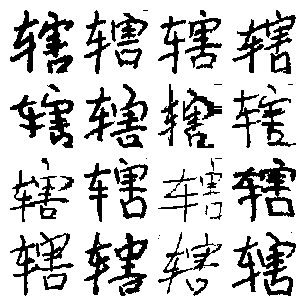 辖辖辖辖
辖辖辖辖
辖辖辖辖
辖辖辖辖